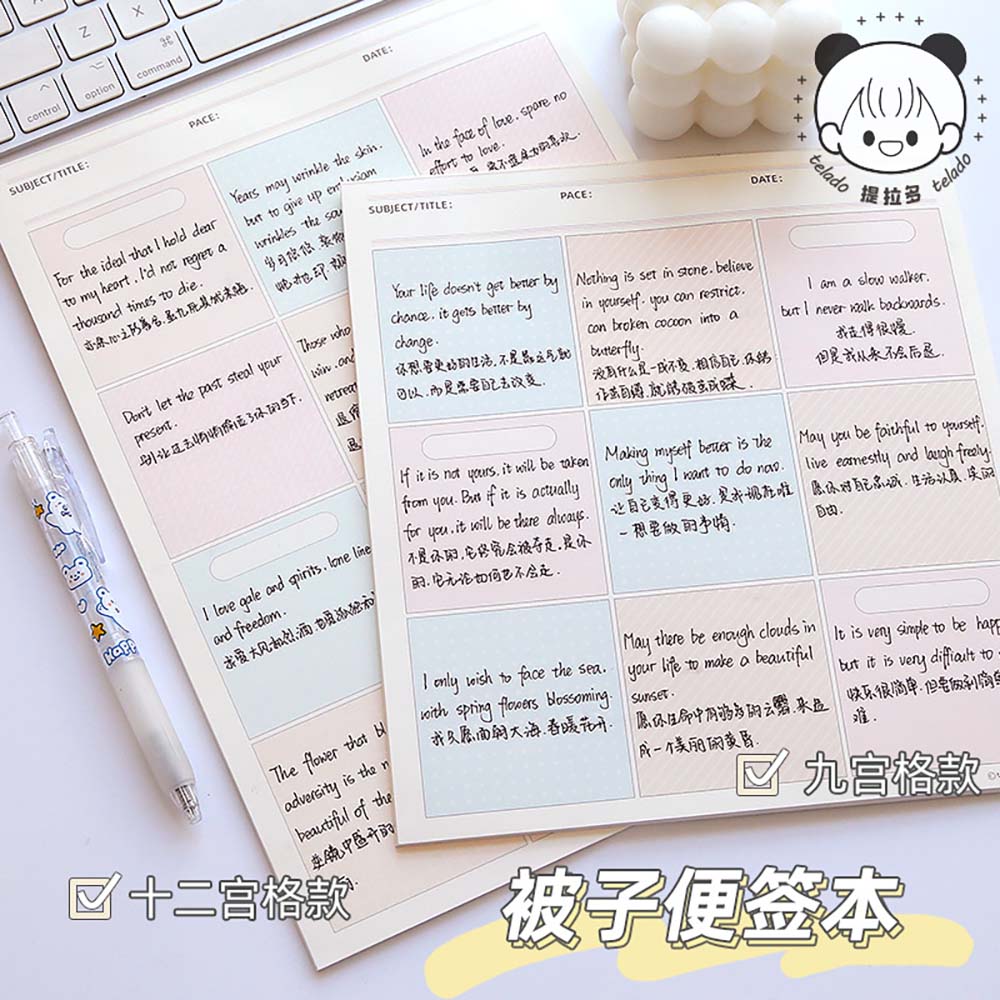 control
option
⌘
command
telado
提拉多
telado
SUBJECT/TITLE:
PACE:
DATE:
For the ideal that I hold dear
to my heart, I'd not regret a
thousand times to die.
Years may wrinkle the skin.
but to give up enthusiasm
wrinkles the
In the face of love, spare no
effort to love.
Don't let the past steal your
present.
别让过去悄悄偷走了你的当下
Those who
win, and
retreat
I love gale and spirits, lone line
and freedom.
我爱大风和烈酒,也爱孤独和
The flower that bl
adversity is the
beautiful of the
逆境中盛开的
SUBJECT/TITLE:
PACE:
DATE:
Your life doesn't get better by
chance, it gets better by
change.
你想要更好的生活,不是靠运气就
可以,而是需要自己去改变.
Nothing is set in stone. believe
in yourself. you can restrict.
can broken cocoon into a
butterfly.
没有什么是一成不变,相信自己,你能
作茧自缚,就能破茧成蝶.
I am a slow walker.
but I never walk backwards.
我走得很慢
但是我从来不会后退.
If it is not yours, it will be taken
from you. But if it is actually
for you, it will be there always.
不是你的,它终究会被夺走,是你
的,它无论如何也不会走.
Making myself better is the
only thing I want to do now.
让自己变得更好,是我现在唯
一想要做的事情
May you be faithful to yourself,
live earnestly and laugh freely.
愿你对自己忠诚,生活认真,笑的
自由.
I only wish to face the sea,
with spring flowers blossoming.
我只愿面朝大海,春暖花开.
May there be enough clouds in
your life to make a beautiful
sunset.
愿你生命中有够多的云翳,来造
成一个美丽的黄昏.
It is very simple to be happ
but it is very difficult to
快乐很简单,但要做到简单
难.
九宫格款
十二宫格款
被子便签本